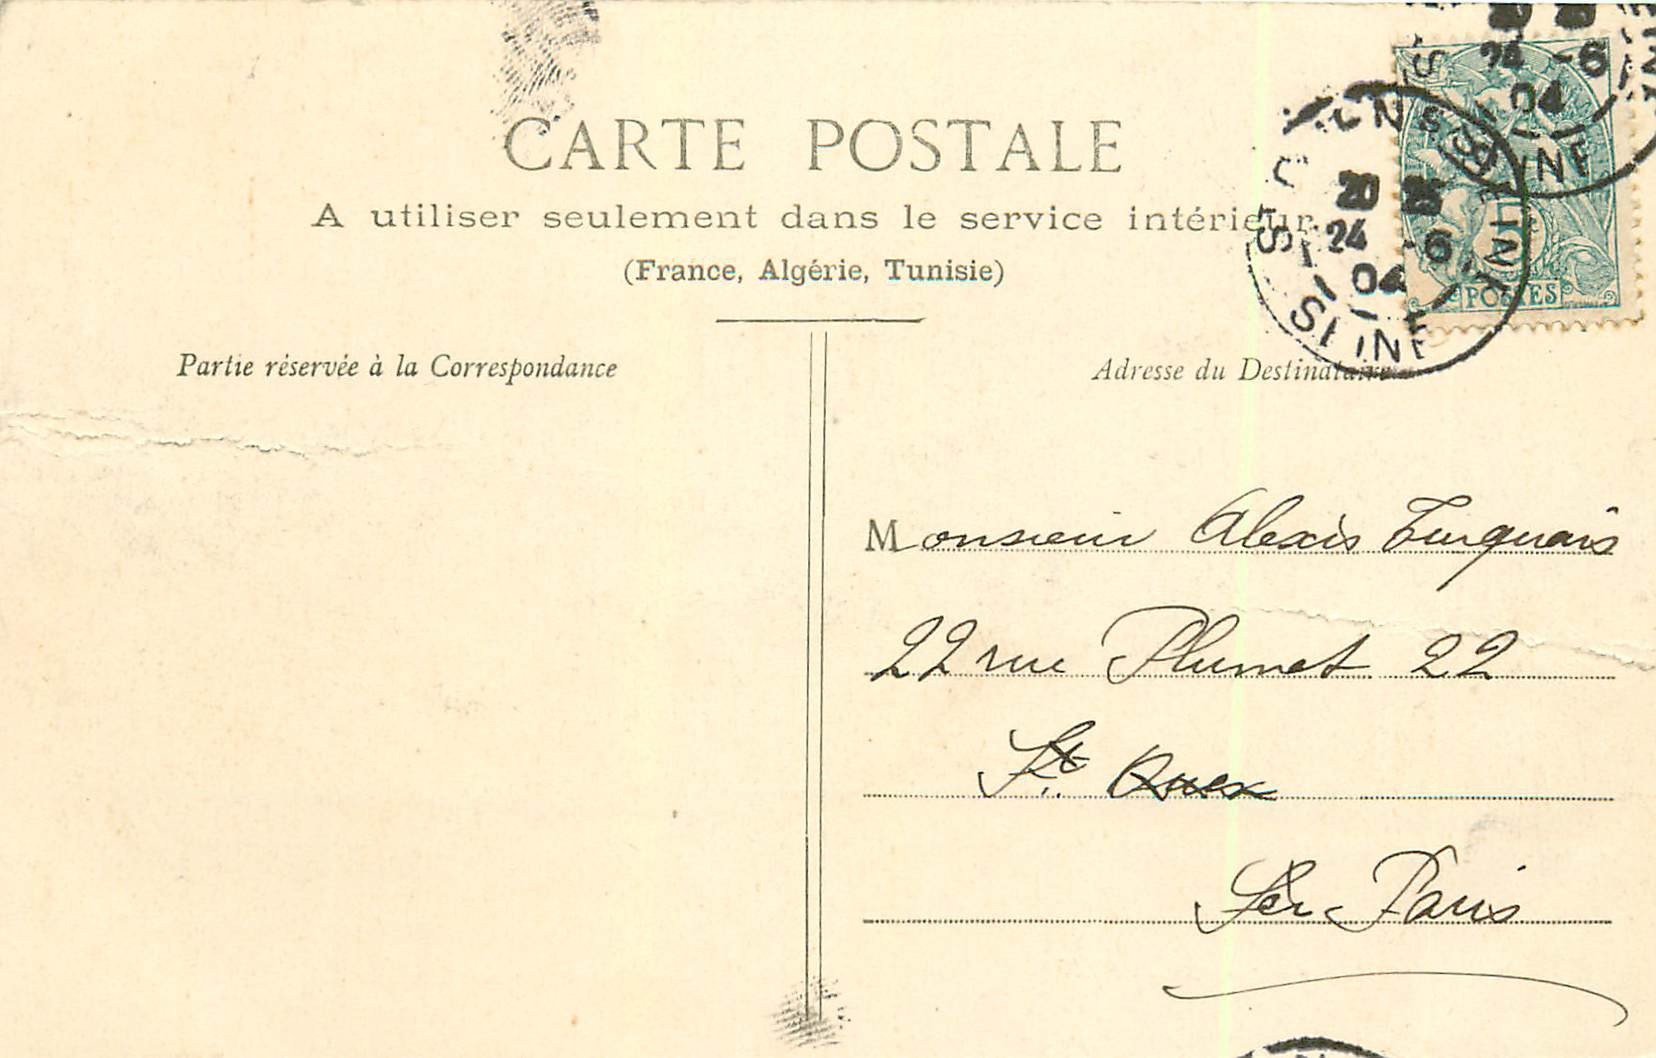 CARTE POSTALE
A utiliser seulement dans le service intérieur
(France, Algérie, Tunisie)
Partie réservée à la Correspondance
Adresse du Destinataire
20 25
24 -6
04
20 25
24 -6
04
POSTES
Monsieur Alexis Turquais
22 rue Plumet 22
St.
Paris